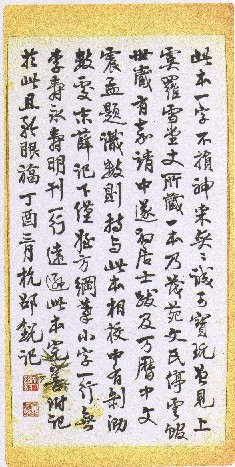 此本一字不損神采奕奕誠可寶玩曾見上
虞羅雪堂丈所藏一本乃茂苑文氏停雲館
世藏有嘉靖中遂初居士跋及萬曆中文
震孟題識數則持與此本相校中有剝泐
數處末薛記下僅孫方綱摹小字一行無
李壽永壽明刊一行遠遜此本完善附記
於此且誌眼福丁酉二月杭鄒銳記